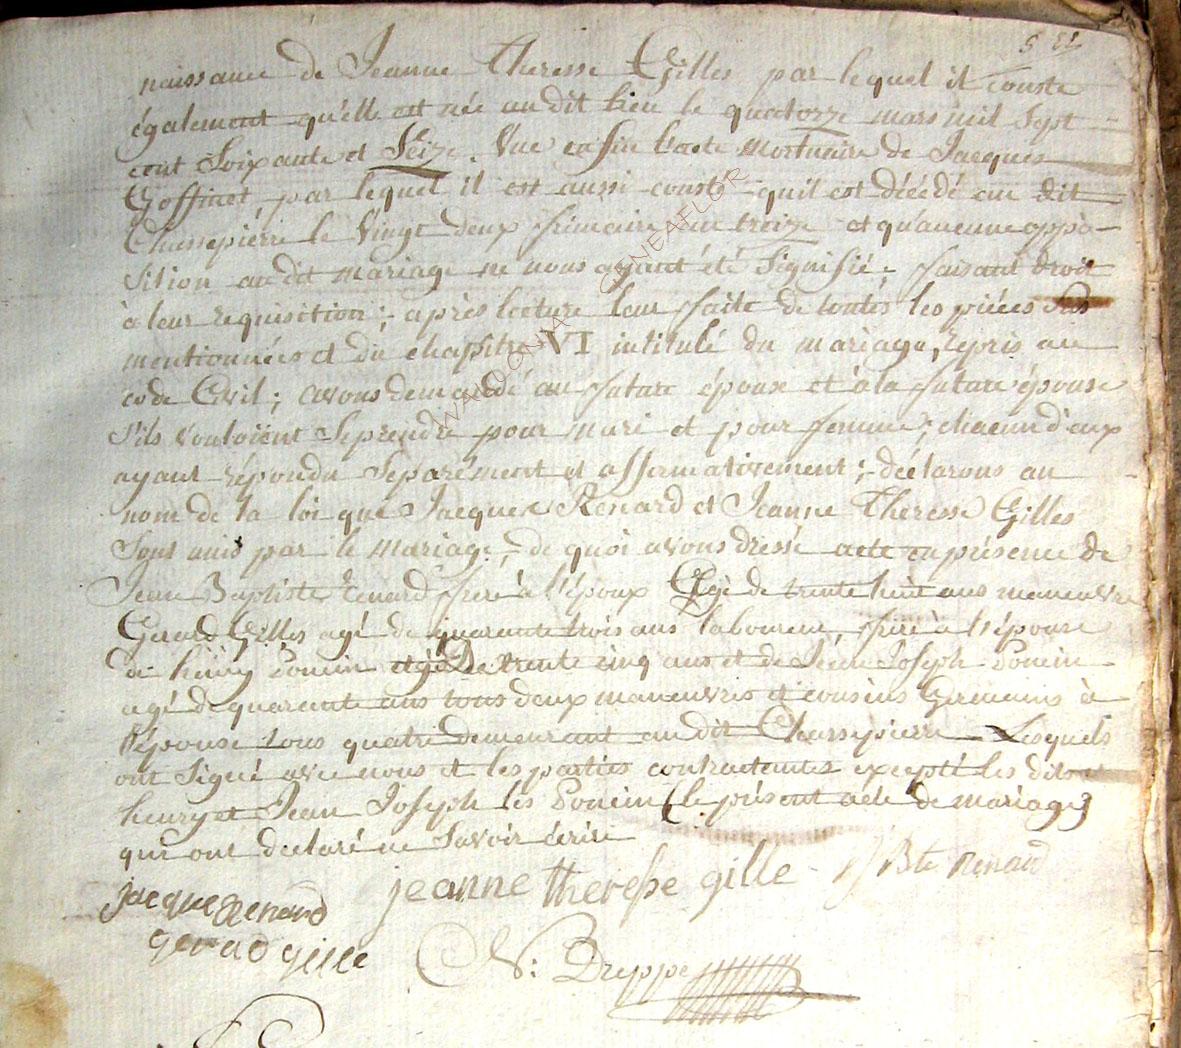 naissance de Jeanne Therese Gilles par lequel il conste
également qu'elle est née au dit lieu le quatorze mars mil Sept
cent Soixante et Seize. Vue enfin l'acte Mortuaire de Jacques
Goffinet, par lequel il est aussi consté qu'il est décédé au dit
Chassepierre le Vingt deux frimaire an treize et qu'aucune oppo-
sition audit mariage ne nous ayant été Signifié; faisant droit
à leur requisition; après lecture leur faite de toutes les pièces sus
mentionnées et du chapitre VI intitulé du mariage, repris au
code Civil; avons demandé au future épouse et à la future épouse
s'ils vouloient Seprendre pour mari et pour femme; chacun d'eux
ayant répondu Séparément et affirmativement; déclarons au
nom de la loi que Jacques Renard et Jeanne Therese Gilles
sont unis par le Mariage, de quoi avons dressé acte en présence de
Jean Baptiste renard frere à l'époux Agé de trente huit ans manœuvre
Gerard Gilles agé de quarante trois ans laboureur, frere à l'épouse
de henry Poncin agé De trente cinq ans et de Jean Joseph Poncin
agé de quarante ans tous deux manœuvres et cousins Germains à
l'épouse tous quatre demeurant au dit Chassepierre Lesquels
ont Signé avec nous et les parties contractantes excepté les dits
henry et Jean Joseph les Poncin (le présent acte de mariage)
qui ont declaré ne Savoir écrire
jeanne therese gille JBte Renard
jacque Renard
gerard gille
N: Dreppe
WALLONIA GENEAFLOR